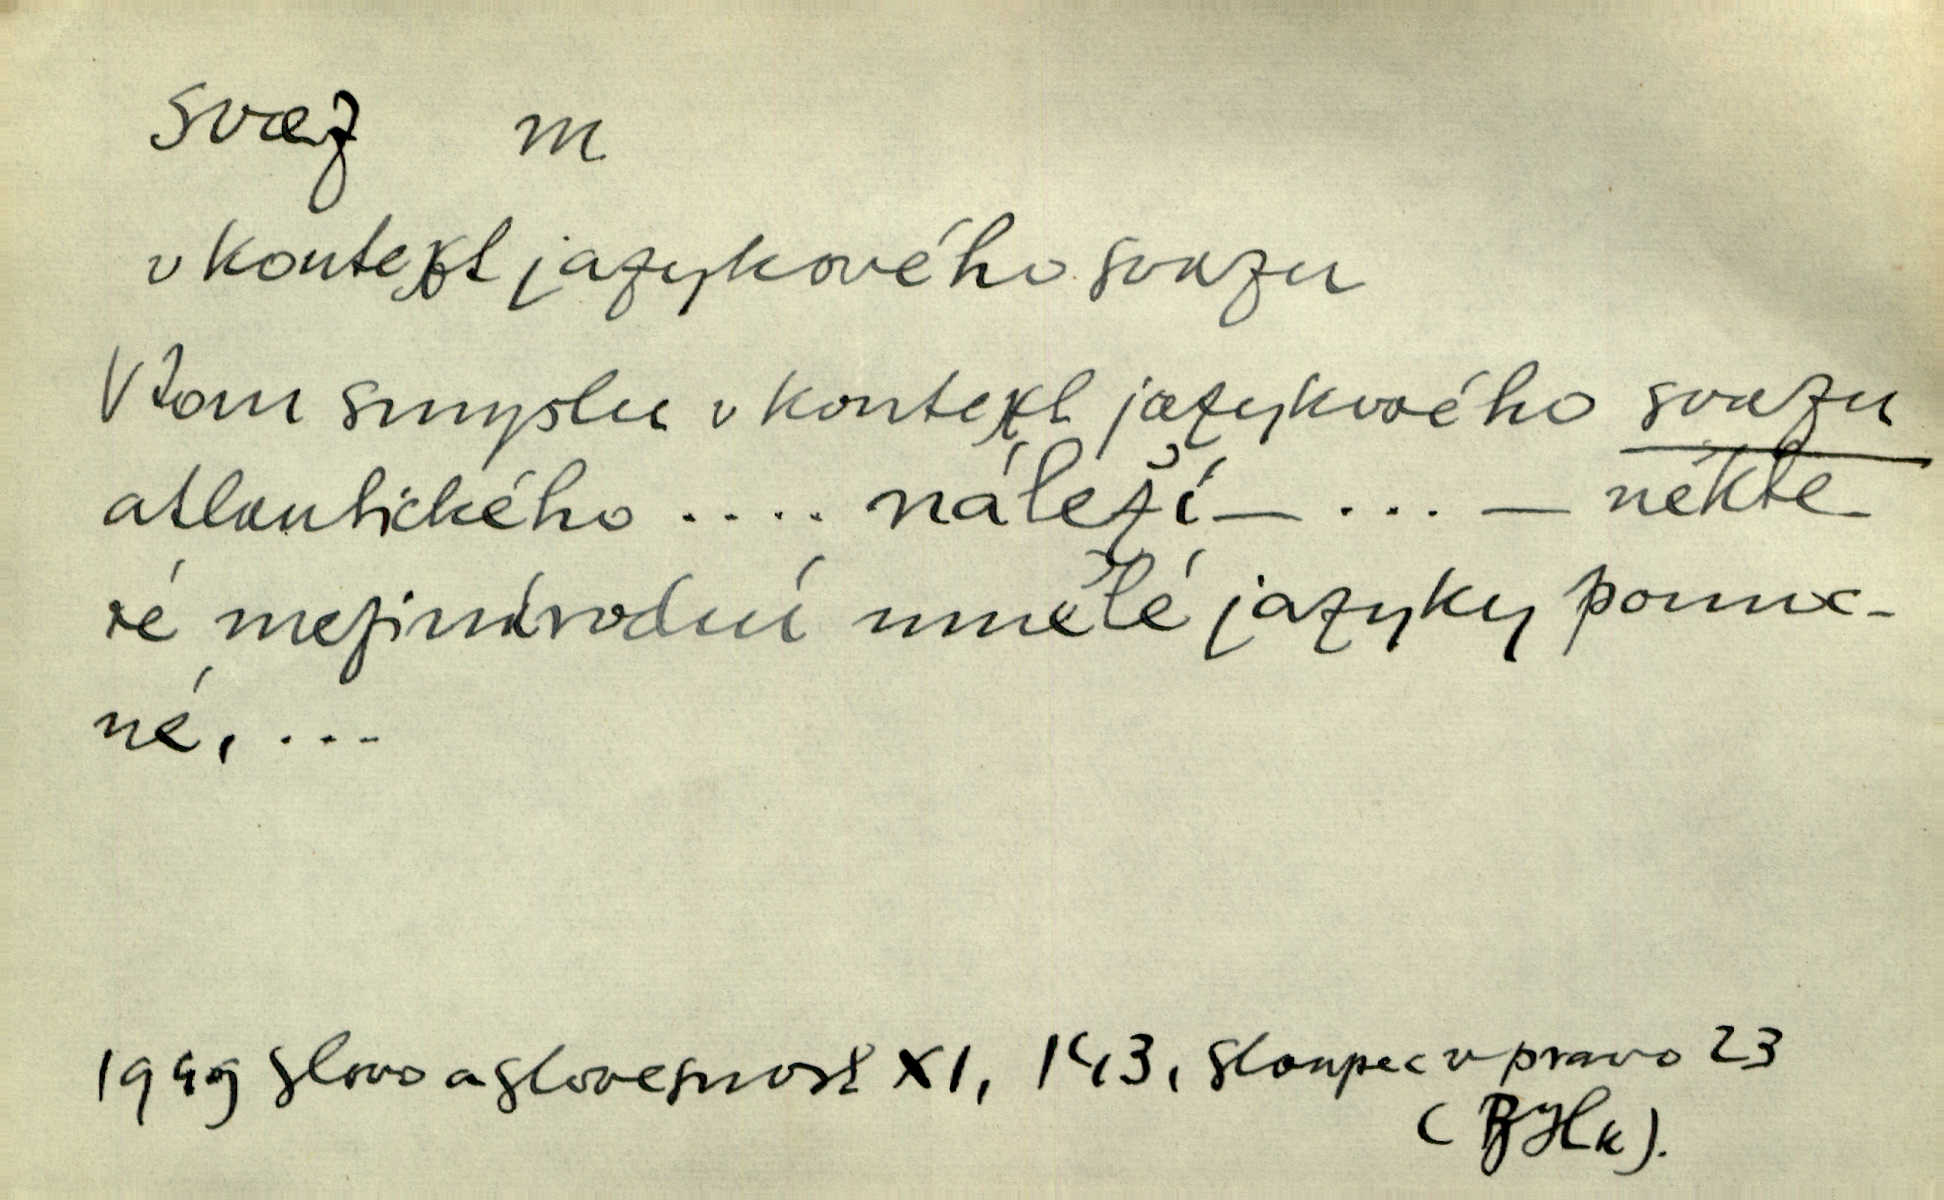 svaz m
v kontext jazykového svazu
V tom smyslu v kontext jazykového svazu
atlantického .... náleží — ... — někte-
ré mezinárodní umělé jazyky pomoc-
né, ...
1949 Slovo a slovesnost XI, 143, sloupec vpravo 23